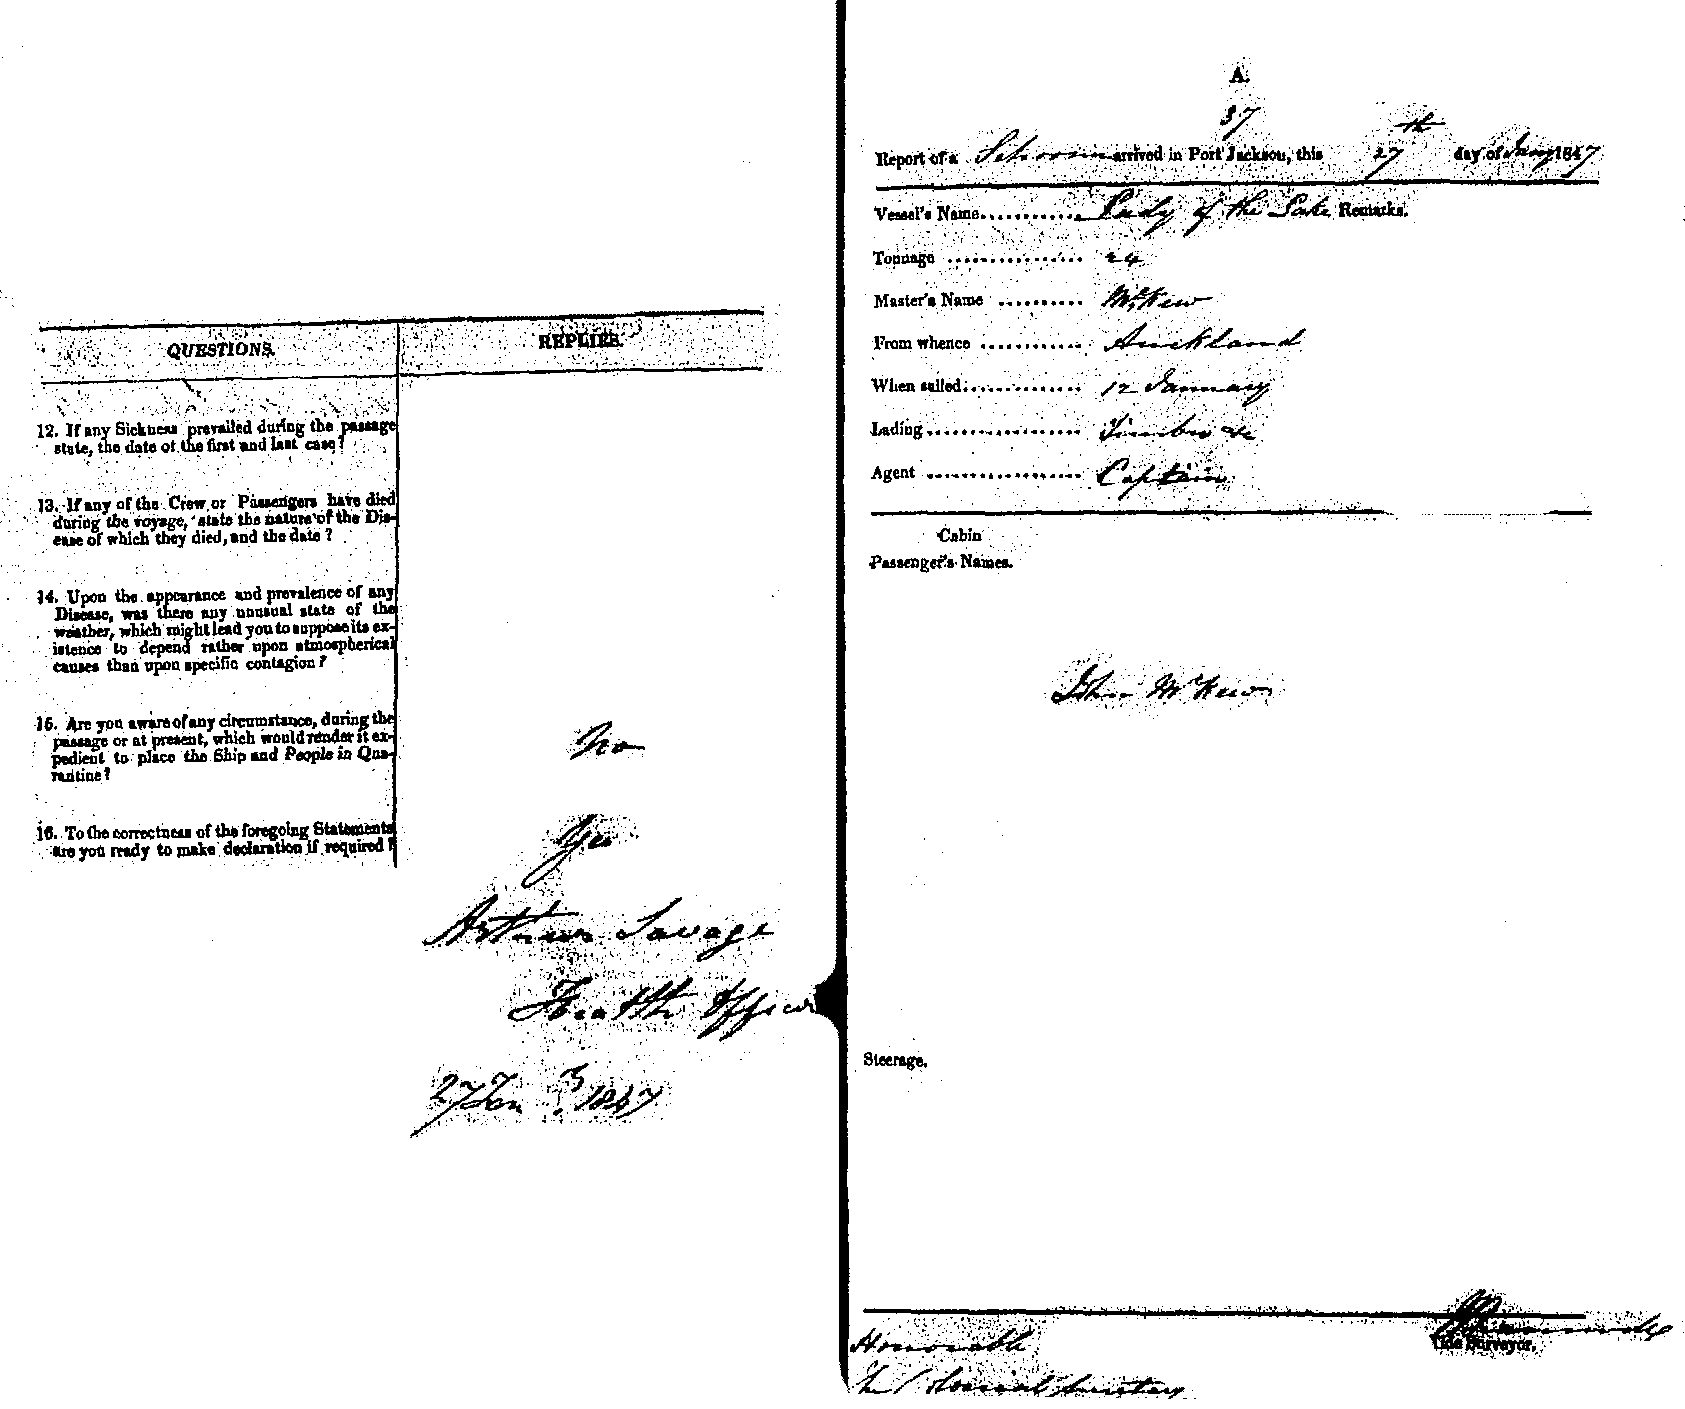 QUESTIONS.
REPLIES.
12. If any Sickness prevailed during the passage
state, the date of the first and last case?
13. If any of the Crew or Passengers have died
during the voyage, state the nature of the Dis-
ease of which they died, and the date?
14. Upon the appearance and prevalence of any
Disease, was there any unusual state of the
weather, which might lead you to suppose its ex-
istence to depend rather upon atmospherical
causes than upon specific contagion?
15. Are you aware of any circumstance, during the
passage or at present, which would render it ex-
pedient to place the Ship and People in Qua-
rantine?
No
16. To the correctness of the foregoing Statements
are you ready to make declaration if required?
Yes
Arthur Savage
Health Officer
27 Jan 1847
A.
37
Report of a Schooner arrived in Port Jackson, this 27th day of Jany 1847
Vessel's Name............ Lady of the Lake Remarks.
Tonnage ................ 24
Master's Name .......... McKew
From whence ............ Auckland
When sailed.............. 12 January
Lading.................. Timber &c
Agent .................. Captain
Cabin
Passenger's Names.
John McKew
Steerage.
Tide Surveyor.
Honorable
The Colonial Secretary